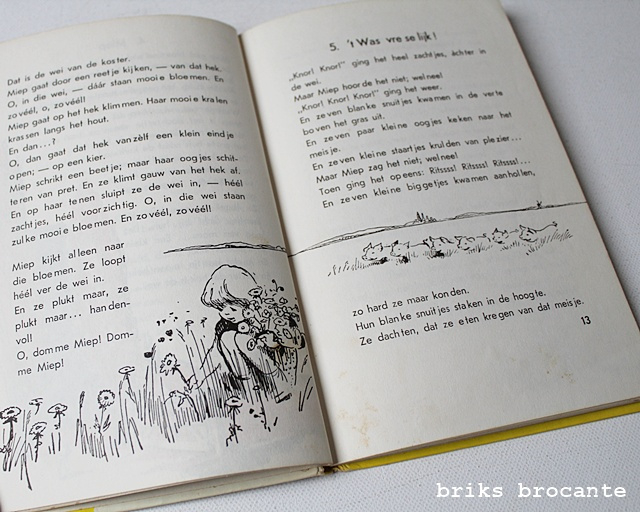 Dat is de wei van de koster.
Miep gaat door een reetje kijken, — van dat hek.
O, in die wei, — dáár staan mooie bloemen. En
zovéél, o, zovéél!
Miep gaat op het hek klimmen. Haar mooie kralen
krassen langs het hout.
En dan...?
O, dan gaat dat hek vanzèlf een klein eindje
open; — op een kier.
Miep schrikt een beetje; maar haar oogjes schit-
teren van pret. En ze klimt gauw van het hek af.
En op haar tenen sluipt ze de wei in, — héél
zachtjes, héél voorzichtig. O, in die wei staan
zulke mooie bloemen. En zovéél, zovéél!
Miep kijkt alleen naar
die bloemen. Ze loopt
héél ver de wei in.
En ze plukt maar, ze
plukt maar... handen-
vol!
O, domme Miep! Dom-
me Miep!
5. 't Was vreselijk!
„Knor! Knor!" ging het heel zachtjes, áchter in
de wei.
Maar Miep hoorde het niet; wel nee!
„Knor! Knor! Knor!" ging het weer.
En zeven blanke snuitjes kwamen in de verte
boven het gras uit.
En zeven paar kleine oogjes keken naar het
meisje.
En zeven kleine staartjes krulden van plezier...
Maar Miep zag het niet; wel nee!
Toen ging het opeens: Ritssss! Ritssss! Ritssss!...
En zeven kleine biggetjes kwamen aanhollen,
zo hard ze maar konden.
Hun blanke snuitjes staken in de hoogte.
Ze dachten, dat ze eten kregen van dat meisje.
13
briks brocante